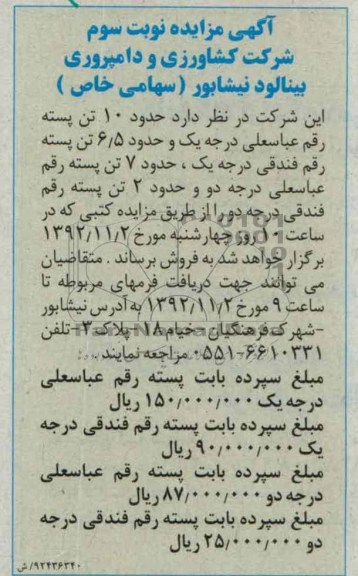 آگهی مزایده نوبت سوم
شرکت کشاورزی و دامپروری
بینالود نیشابور ( سهامی خاص )
این شرکت در نظر دارد حدود ۱۰ تن پسته
رقم عباسعلی درجه یک و حدود ۶٫۵ تن پسته
رقم فندقی درجه یک ، حدود ۷ تن پسته رقم
عباسعلی درجه دو و حدود ۲ تن پسته رقم
فندقی درجه دو را از طریق مزایده کتبی که در
ساعت ۱۰ روز چهارشنبه مورخ ۱۳۹۲/۱۱/۲
برگزار خواهد شد به فروش برساند . متقاضیان
می توانند جهت دریافت فرمهای مربوطه تا
ساعت ۹ مورخ ۱۳۹۲/۱۱/۲ به آدرس نیشابور
-شهرک فرهنگیان -خیام ۱۸- پلاک ۳- تلفن
۰۵۵۱-۶۶۱۰۳۳۱ مراجعه نمایند .
مبلغ سپرده بابت پسته رقم عباسعلی
درجه یک ۱۵۰/۰۰۰/۰۰۰ ریال
مبلغ سپرده بابت پسته رقم فندقی درجه
یک ۹۰/۰۰۰/۰۰۰ ریال
مبلغ سپرده بابت پسته رقم عباسعلی
درجه دو ۸۷/۰۰۰/۰۰۰ ریال
مبلغ سپرده بابت پسته رقم فندقی درجه
دو ۲۵/۰۰۰/۰۰۰ ریال
۹۲۴۳۶۳۴۰/ش